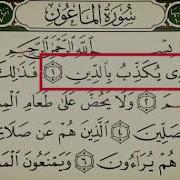 سُورَةُ المَاعُونِ
بِسْمِ ٱللَّهِ ٱلرَّحْمَٰنِ ٱلرَّحِيمِ
ى يُكَذِّبُ بِٱلدِّينِ ١ فَذَٰلِكَ
٢ وَلَا يَحُضُّ عَلَىٰ طَعَامِ ٱلْمِ
صَلِّينَ ٤ ٱلَّذِينَ هُمْ عَن صَلَا
هُمْ يُرَآءُونَ ٦ وَيَمْنَعُونَ ٱلْمَ